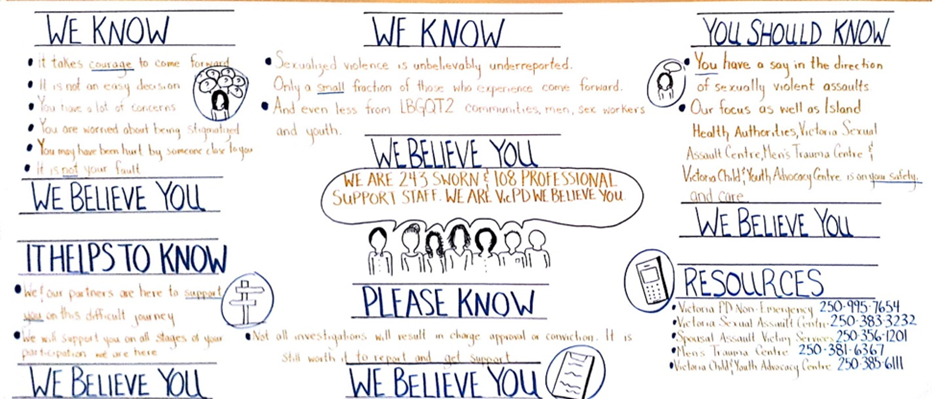 WE KNOW
• It takes courage to come forward
• It is not an easy decision
• You have a lot of concerns
• You are worried about being stigmatized
• You may have been hurt by someone close to you
• It is not your fault
WE BELIEVE YOU
IT HELPS TO KNOW
• We & our partners are here to support
you on this difficult journey
• We will support you on all stages of your
participation we are here
WE BELIEVE YOU
WE KNOW
• Sexualized violence is unbelievably underreported.
Only a small fraction of those who experience come forward.
• And even less from LBGQT2 communities, men, sex workers
and youth.
WE BELIEVE YOU
WE ARE 243 SWORN & 108 PROFESSIONAL
SUPPORT STAFF. WE ARE VicPD WE BELIEVE YOU.
PLEASE KNOW
• Not all investigations will result in charge approval or conviction. It is
still worth it to report and get support
WE BELIEVE YOU
YOU SHOULD KNOW
• You have a say in the direction
of sexually violent assaults
• Our focus as well as Island
Health Authorities, Victoria Sexual
Assault Centre, Men's Trauma Centre &
Victoria Child & Youth Advocacy Centre is on your safety
and care
WE BELIEVE YOU
RESOURCES
• Victoria PD Non-Emergency 250-995-7654
• Victoria Sexual Assault Centre-250-383-3232
• Spousal Assault Victim Services 250-356-1201
• Men's Trauma Centre 250-381-6367
• Victoria Child & Youth Advocacy Centre 250-385-6111